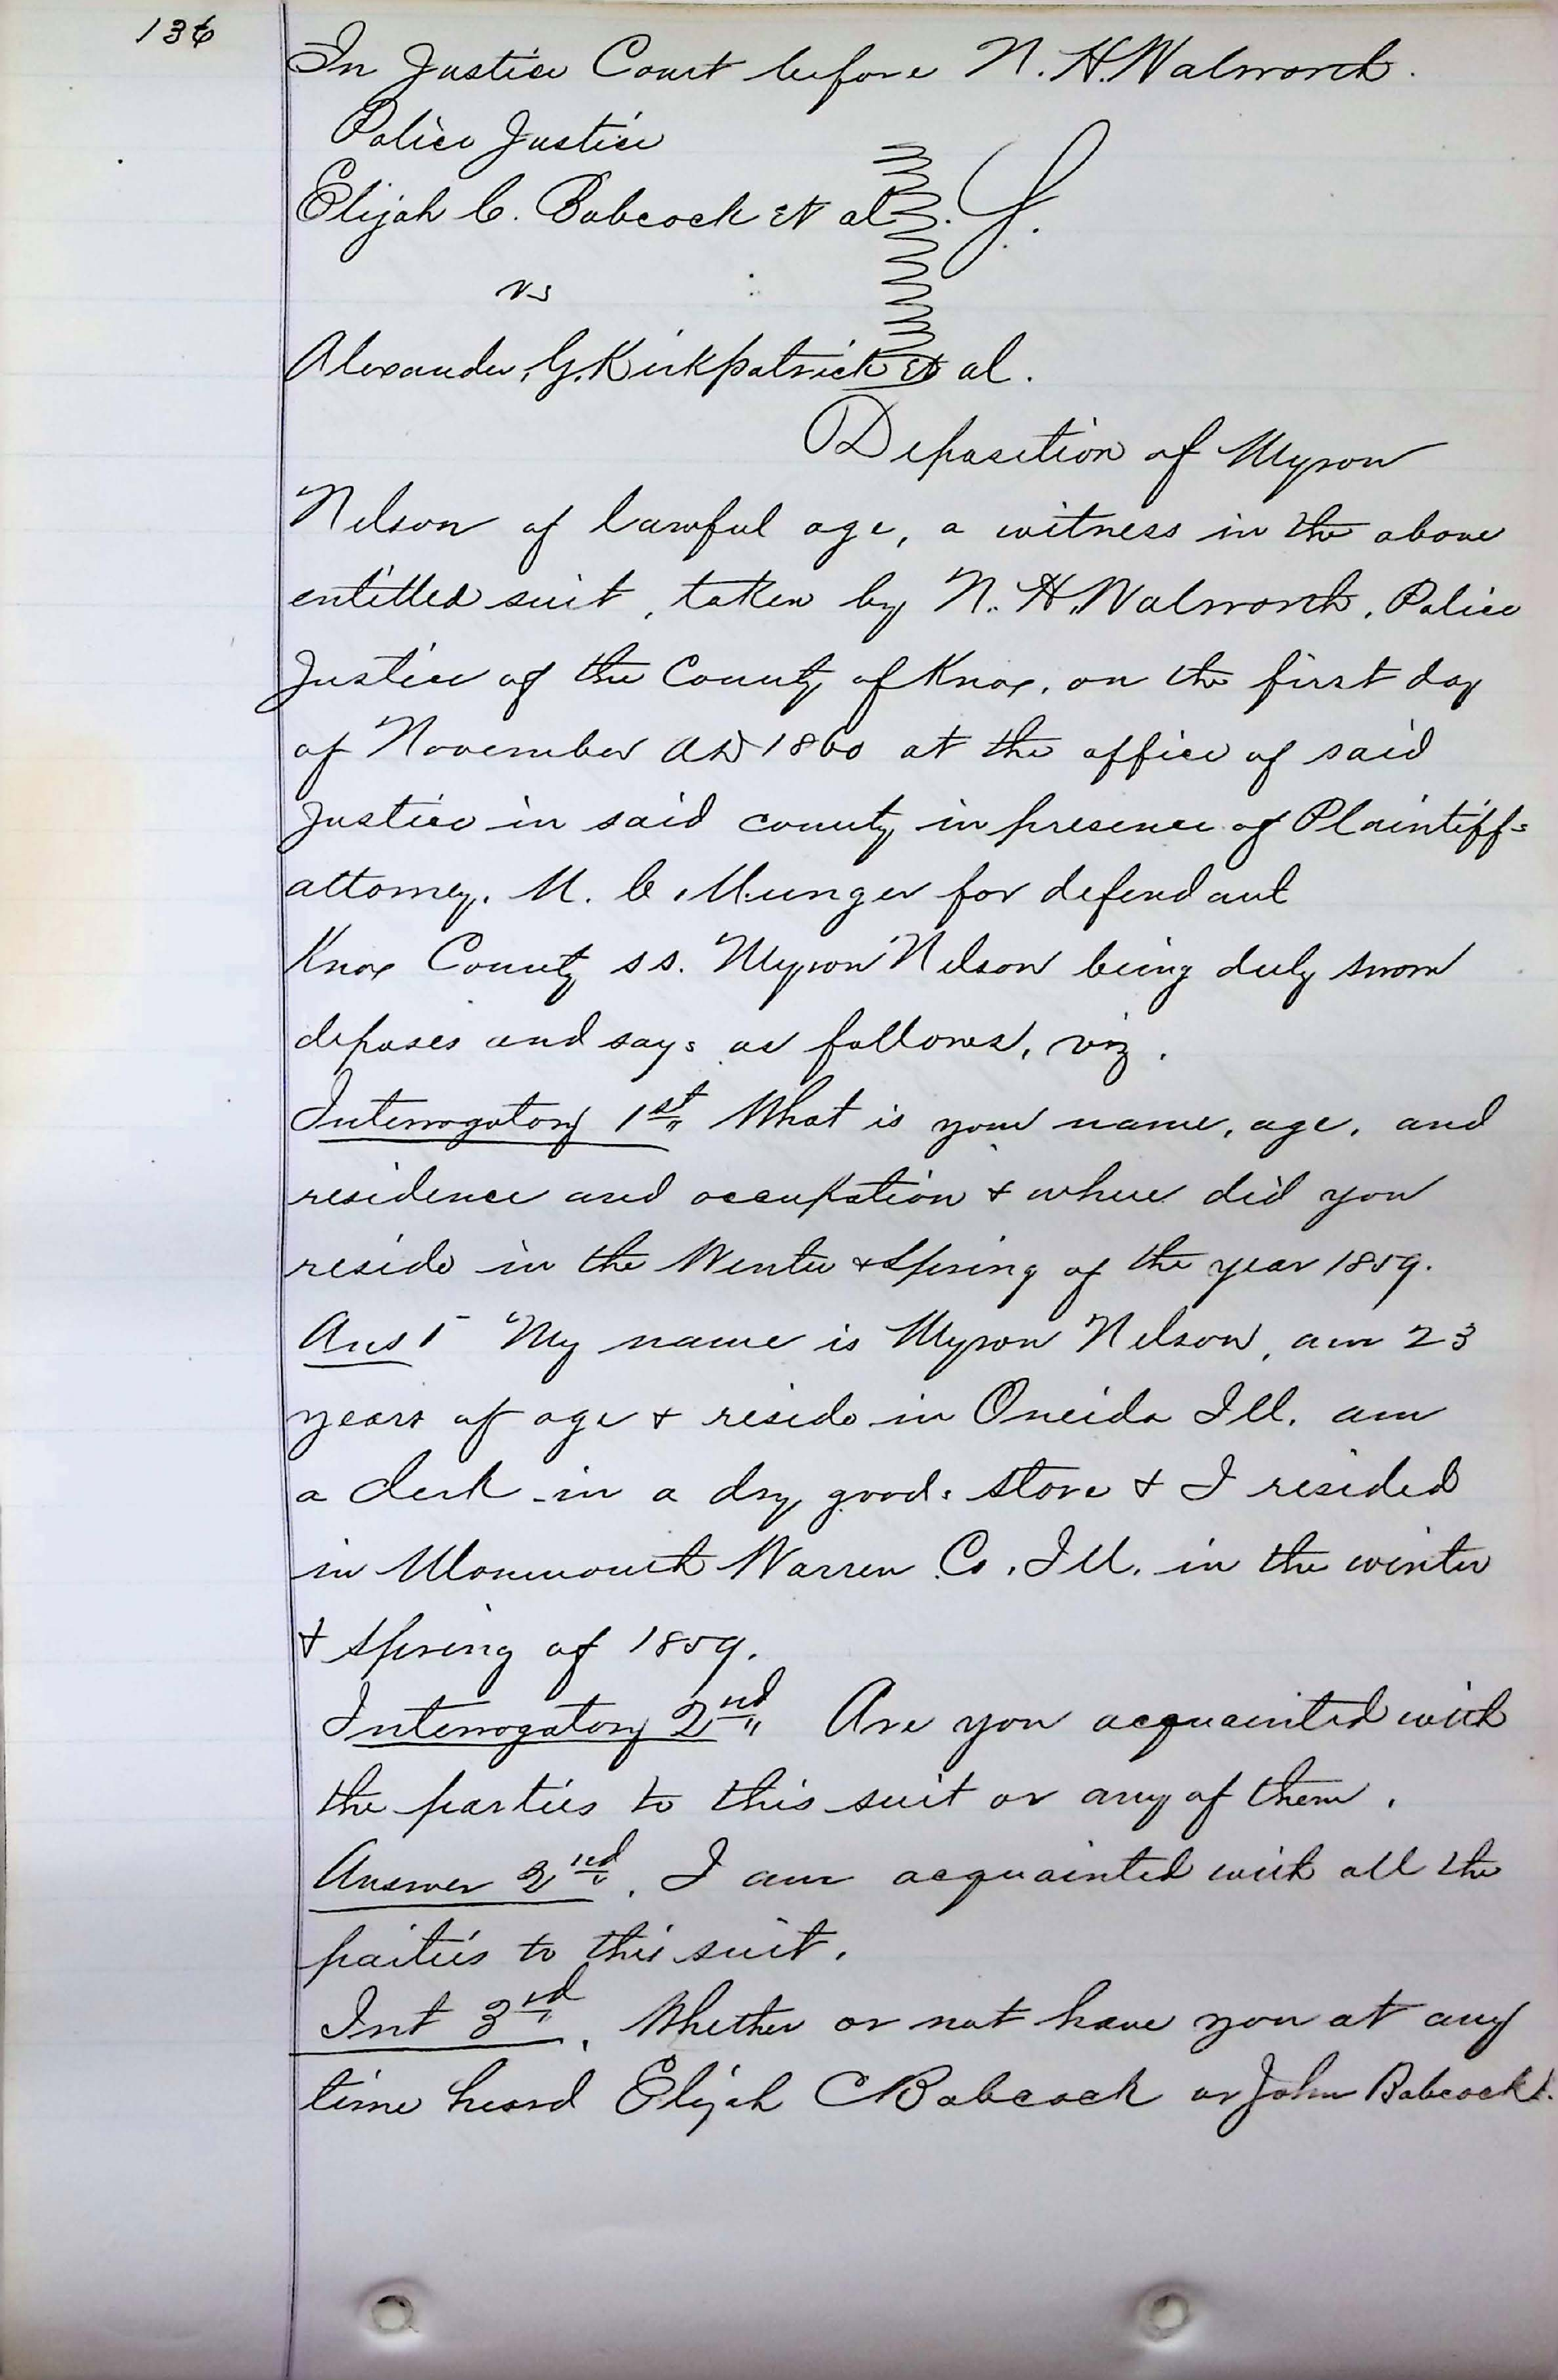 136
In Justice Court before N. H. Walworth.
Police Justice
Elijah C. Babcock et al.
vs
Alexander, G. Kirkpatrick et al.
Deposition of Myron
Nelson of lawful age, a witness in the above
entitled suit, taken by N. H. Walworth, Police
Justice of the County of Knox, on the first day
of November AD 1860 at the office of said
Justice in said county in presence of Plaintiffs
attorney. M. C. Munger for defendant
Knox County ss. Myron Nelson being duly sworn
deposes and says as follows, viz.
Interrogatory 1st" What is your name, age, and
residence and occupation & where did you
reside in the Winter & Spring of the year 1859.
Ans 1 My name is Myron Nelson, am 23
years of age & reside in Oneida Ill. am
a clerk in a dry goods store & I resided
in Monmouth Warren Co. Ill. in the winter
& Spring of 1859.
Interrogatory 2nd" Are you acquainted with
the parties to this suit or any of them.
Answer 2nd. I am acquainted with all the
parties to this suit.
Int 3rd. Whether or not have you at any
time heard Elijah C Babcock or John Babcock